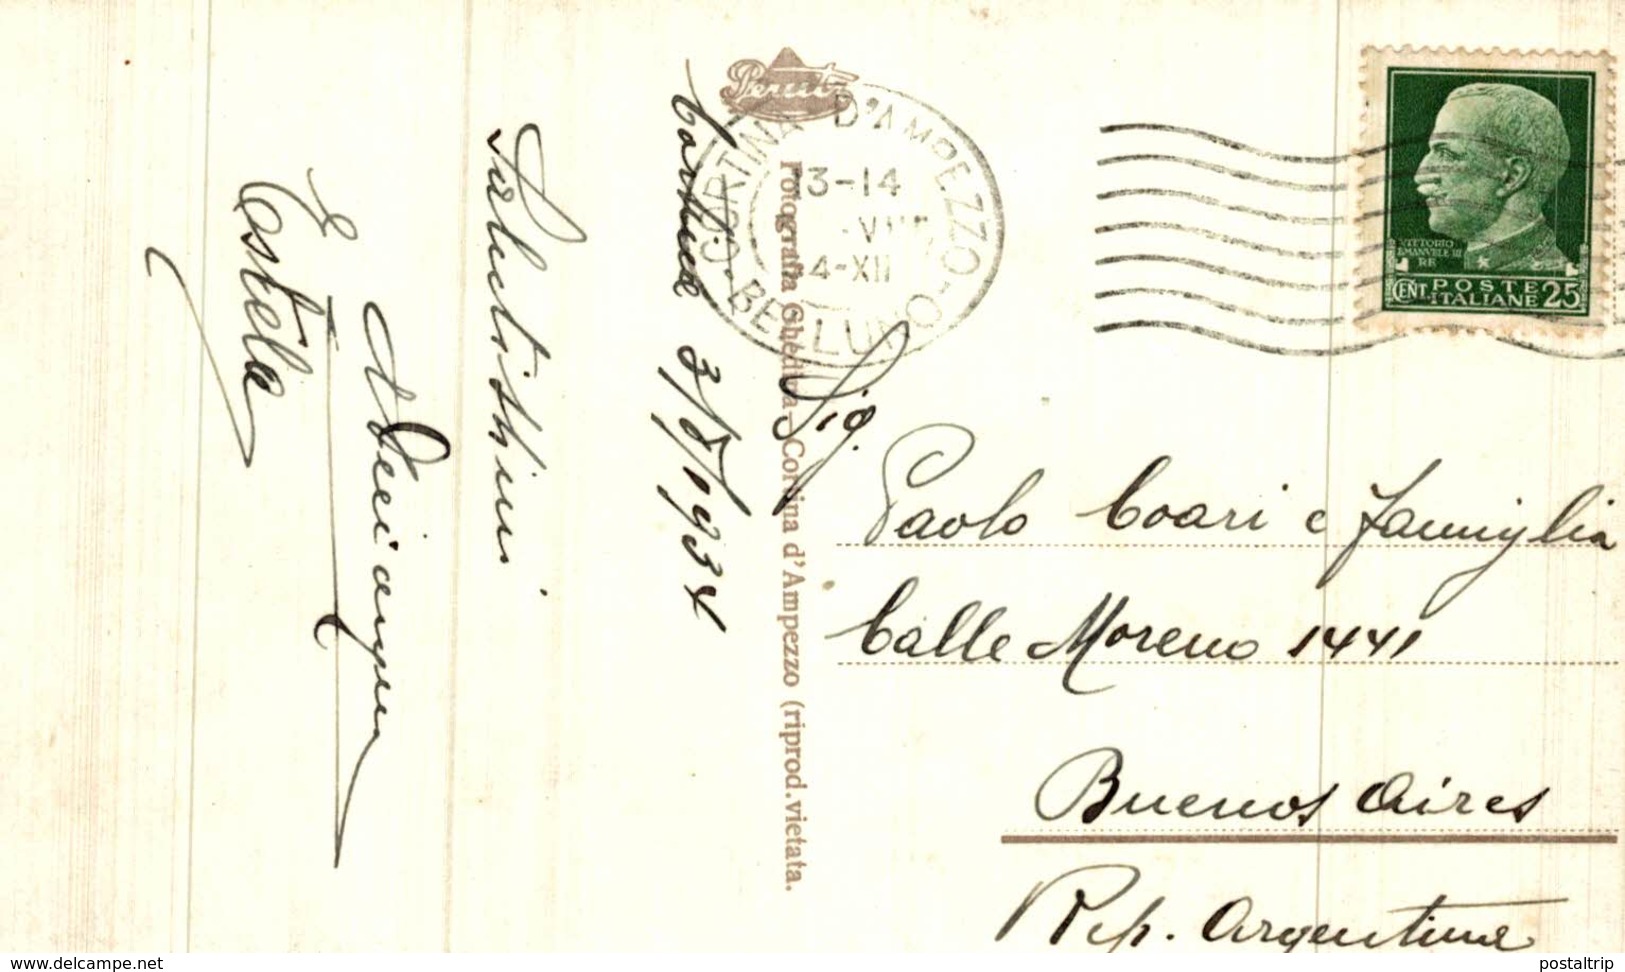 Cortina 3/8/1934
Salutissimi
E
Castela
Perutz
Fotografia Ghedina - Cortina d'Ampezzo (riprod. vietata.
CORTINA D'AMPEZZO
BELLUNO
13-14
4-XII
VITTORIO
EMANVELE III
RE
CENT. POSTE
ITALIANE 25
Sig.
Paolo Coari e famiglia
Calle Moreno 1441
Buenos Aires
Rep. Argentina
www.delcampe.net
postaltrip